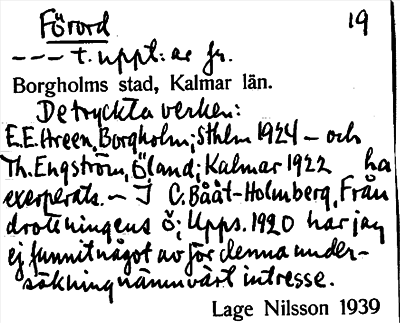 Förord 19
--- t. uppt:ar fr.
Borgholms stad, Kalmar län.
De tryckta verken:
E.E. Areen, Borgholm; Sthlm 1924 – och
Th. Engström, Öland; Kalmar 1922 ha
exerperats. – I C. Bååt-Holmberg, Från
drottningens ö; Upps. 1920 har jag
ej funnit något av för denna under-
sökning nämnvärt intresse.
Lage Nilsson 1939